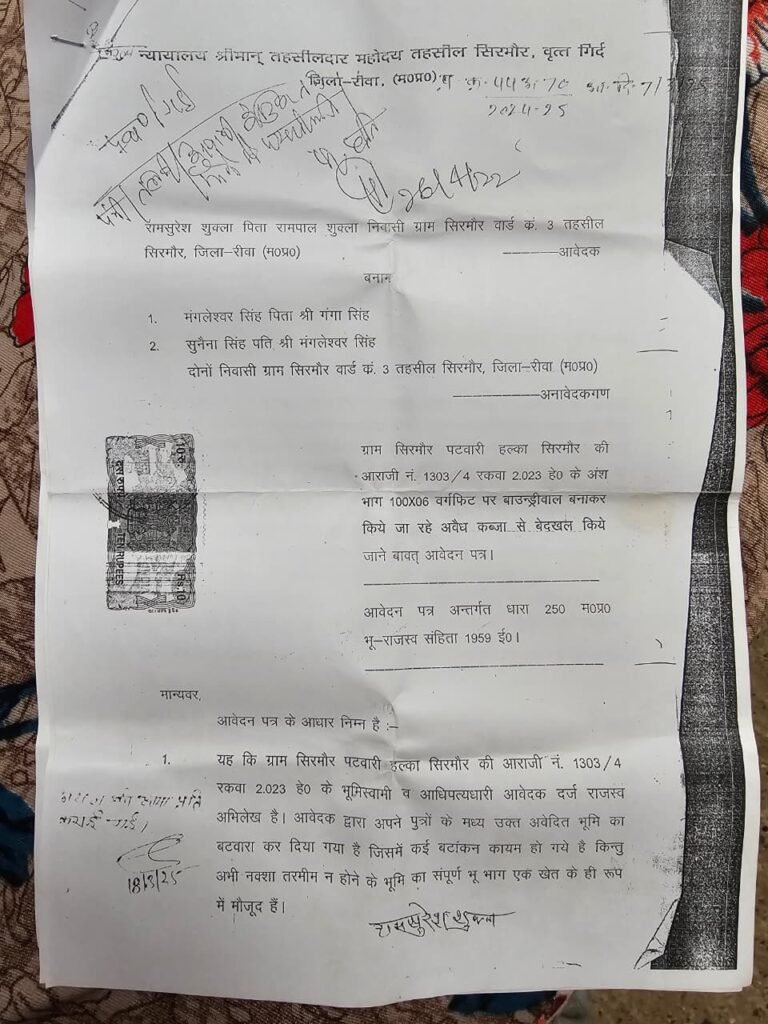 न्यायालय श्रीमान् तहसीलदार महोदय तहसील सिरमौर, वृत्त गिर्द
जिला–रीवा, (म०प्र०)
2024-25
26/4/22
रामसुरेश शुक्ला पिता रामपाल शुक्ला निवासी ग्राम सिरमौर वार्ड कं. 3 तहसील
सिरमौर, जिला–रीवा (म०प्र०) ––––––आवेदक
बनाम
1. मंगलेश्वर सिंह पिता श्री गंगा सिंह
2. सुनैना सिंह पति श्री मंगलेश्वर सिंह
दोनों निवासी ग्राम सिरमौर वार्ड कं. 3 तहसील सिरमौर, जिला–रीवा (म०प्र०)
–––––––––अनावेदकगण
ग्राम सिरमौर पटवारी हल्का सिरमौर की
आराजी नं. 1303/4 रकवा 2.023 हे० के अंश
भाग 100X06 वर्गफिट पर बाउन्ड्रीवाल बनाकर
किये जा रहे अवैध कब्जा से बेदखल किये
जाने बावत् आवेदन पत्र।
TEN RUPEES
Rs.10
आवेदन पत्र अन्तर्गत धारा 250 म०प्र०
भू–राजस्व संहिता 1959 ई०।
मान्यवर,
आवेदन पत्र के आधार निम्न है :–
1. यह कि ग्राम सिरमौर पटवारी हल्का सिरमौर की आराजी नं. 1303/4
रकवा 2.023 हे० के भूमिस्वामी व आधिपत्यधारी आवेदक दर्ज राजस्व
अभिलेख है। आवेदक द्वारा अपने पुत्रों के मध्य उक्त अवेदित भूमि का
बटवारा कर दिया गया है जिसमें कई बटांकन कायम हो गये है किन्तु
अभी नक्शा तरमीम न होने के भूमि का संपूर्ण भू भाग एक खेत के ही रूप
में मौजूद हैं।
18/3/25
रामसुरेश शुक्ला